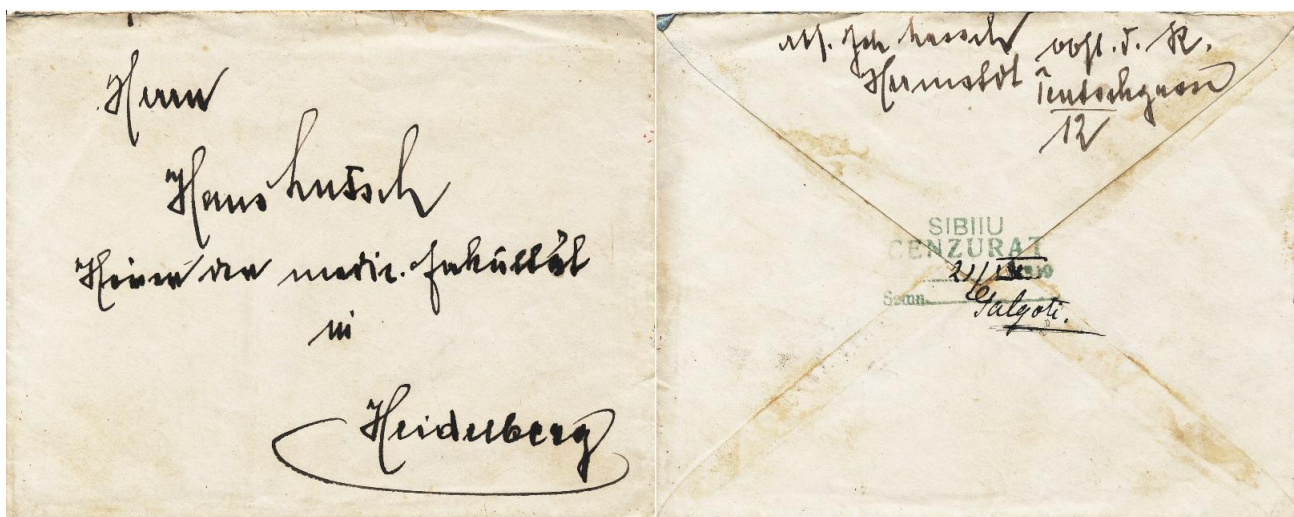 Herrn
Hans Lutsch
Hörer der medic. Fakultät
in
Heidelberg
Abs. Joh. Lutsch
Hermstdt
Teutschgasse
12
SIBIIU
CENZURAT
21/
Semn.